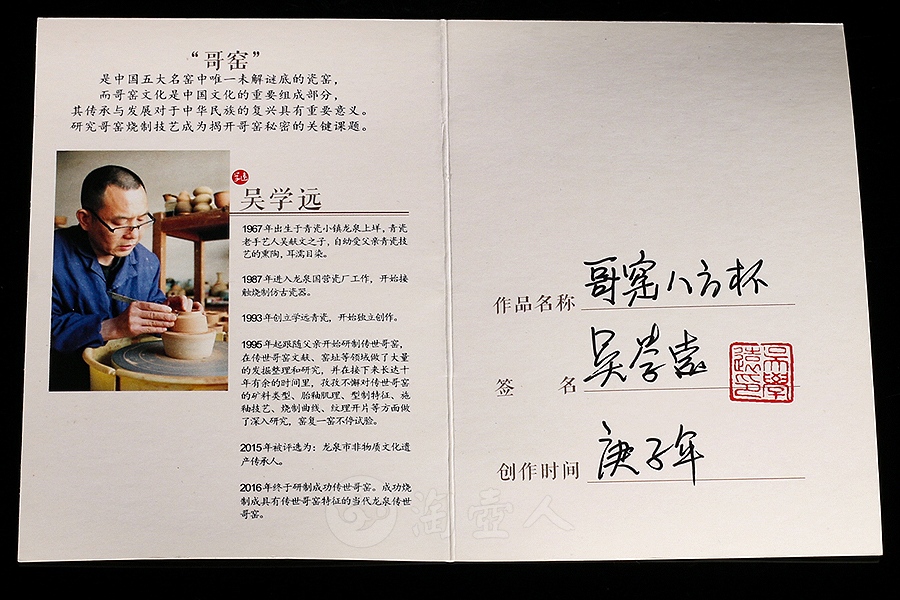 “哥窑”
是中国五大名窑中唯一未解谜底的瓷窑，
而哥窑文化是中国文化的重要组成部分，
其传承与发展对于中华民族的复兴具有重要意义。
研究哥窑烧制技艺成为揭开哥窑秘密的关键课题。
吴学远
1967年出生于青瓷小镇龙泉上垟，青瓷
老手艺人吴献文之子，自幼受父亲青瓷技
艺的熏陶，耳濡目染。
1987年进入龙泉国营瓷厂工作，开始接
触烧制仿古瓷器。
1993年创立学远青瓷，开始独立创作。
1995年起跟随父亲开始研制传世哥窑，
在传世哥窑文献、窑址等领域做了大量
的发掘整理和研究，并在接下来长达十
年有余的时间里，孜孜不懈对传世哥窑
的矿料类型、胎釉肌理、型制特征、施
釉技艺、烧制曲线、纹理开片等方面做
了深入研究，窑复一窑不停试验。
2015年被评选为：龙泉市非物质文化遗
产传承人。
2016年终于研制成功传世哥窑。成功烧
制成具有传世哥窑特征的当代龙泉传世
哥窑。
作品名称 哥窑八方杯
签 名 吴学远
吴學遠印
创作时间 庚子年
淘壶人